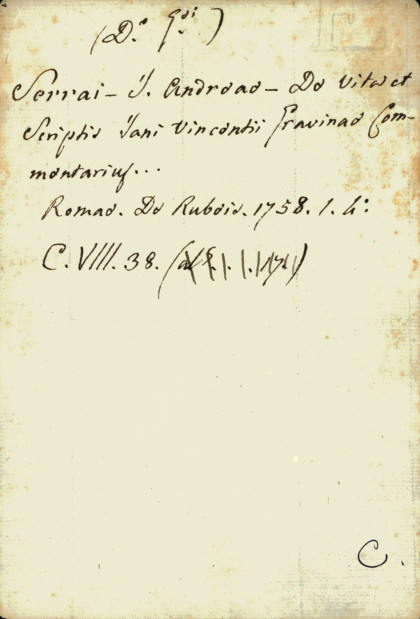 (D.r G.di)
Serrai - J. Andreae - De Vita et
Scriptis Jani Vincentii Gravinae Com-
mentarius...
Romae. De Rubeis. 1758. 1. 4:
C. VIII. 38.
C.